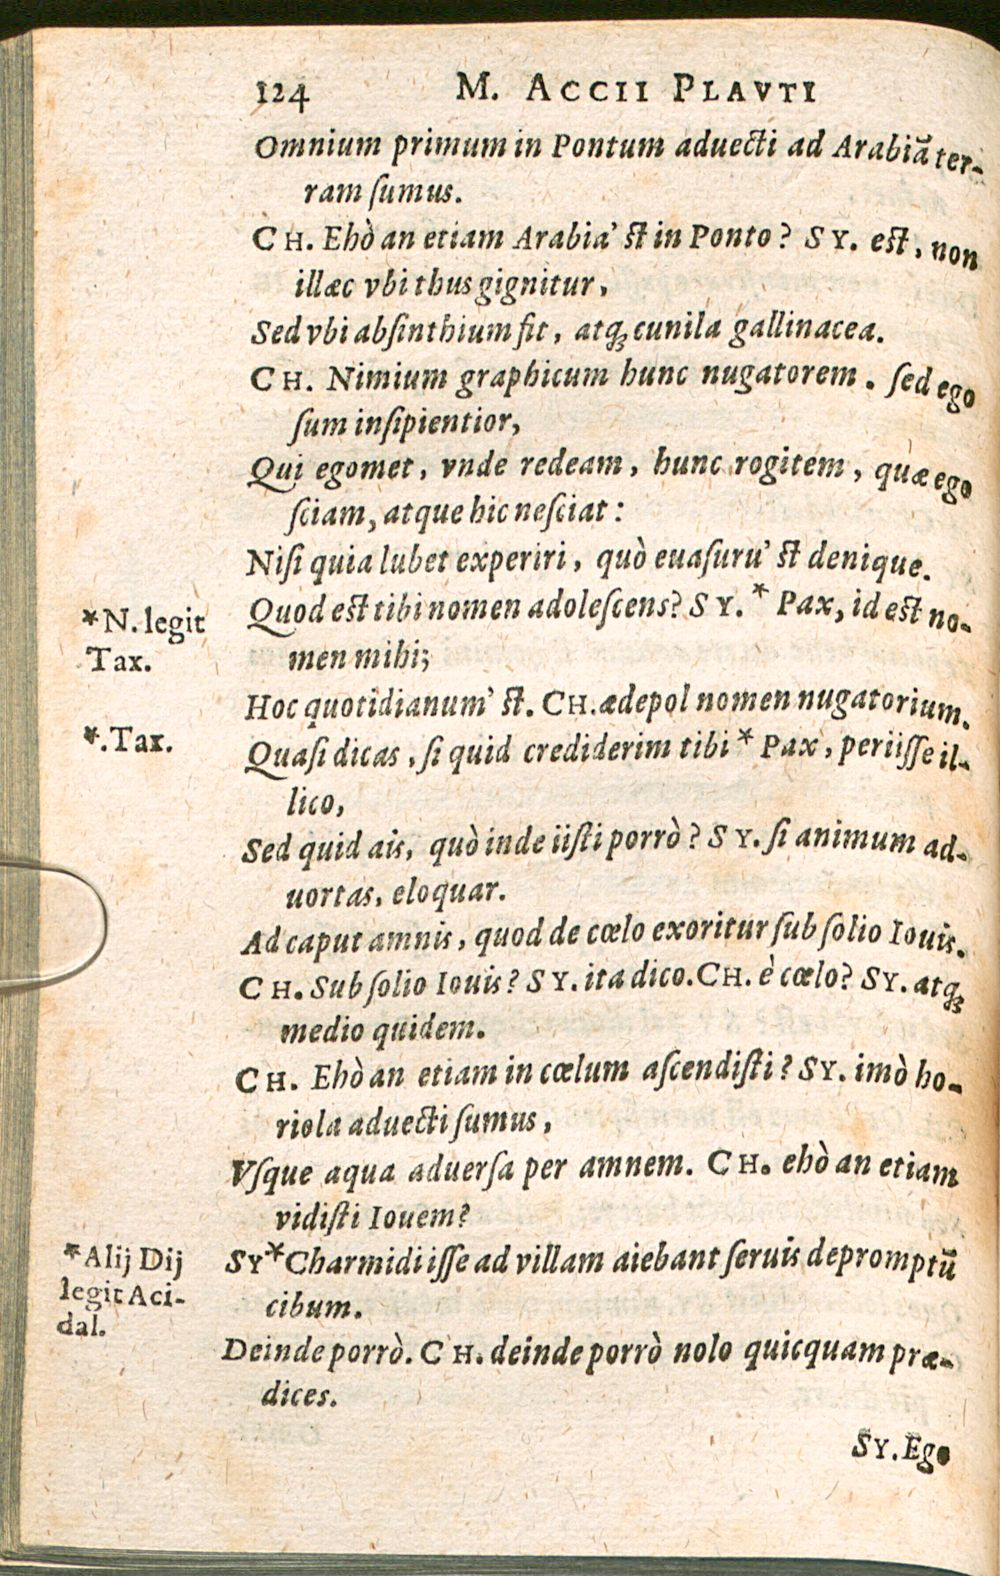 124 M. ACCII PLAVTI
Omnium primum in Pontum aduecti ad Arabiā ter-
ram ſumus.
CH. Ehò an etiam Arabia' ſt in Ponto? SY. eſt, non
illæc vbi thus gignitur,
Sed vbi abſinthium fit, atq; cunila gallinacea.
CH. Nimium graphicum hunc nugatorem. ſed ego
ſum inſipientior,
Qui egomet, vnde redeam, hunc rogitem, quæ ego
ſciam, atque hic neſciat:
Niſi quia lubet experiri, quò euaſuru' ſt denique.
*N. legit
Tax.
Quod eſt tibi nomen adoleſcens? SY. * Pax, id eſt no-
men mihi;
Hoc quotidianum' ſt. CH. ædepol nomen nugatorium.
*.Tax.
Quaſi dicas, ſi quid crediderim tibi * Pax, periiſſe il-
lico,
Sed quid ais, quò inde iiſti porrò? SY. ſi animum ad-
uortas, eloquar.
Ad caput amnis, quod de cœlo exoritur ſub ſolio Iouis.
CH. Sub ſolio Iouis? SY. ita dico. CH. è cœlo? SY. atq;
medio quidem.
CH. Ehò an etiam in cœlum aſcendiſti? SY. imò ho-
riola aduecti ſumus,
Vſque aqua aduerſa per amnem. CH. ehò an etiam
vidiſti Iouem?
*Alij Dij
legit Aci-
dal.
SY * Charmidi iſſe ad villam aiebant ſeruis depromptū
cibum.
Deinde porrò. CH. deinde porrò nolo quicquam præ-
dices.
SY. Ego